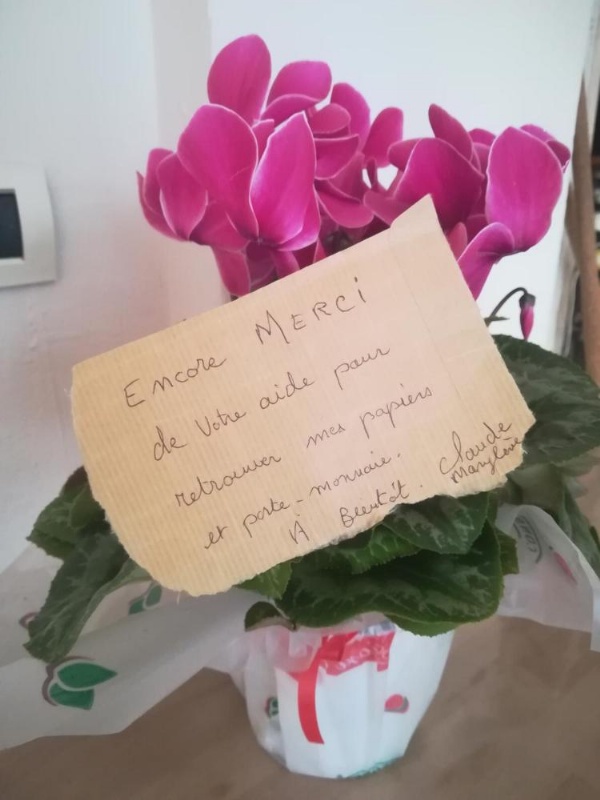 Encore MERCI
de Votre aide pour
retrouver mes papiers
et porte-monnaie.
À Bientôt. Claude
Marylène